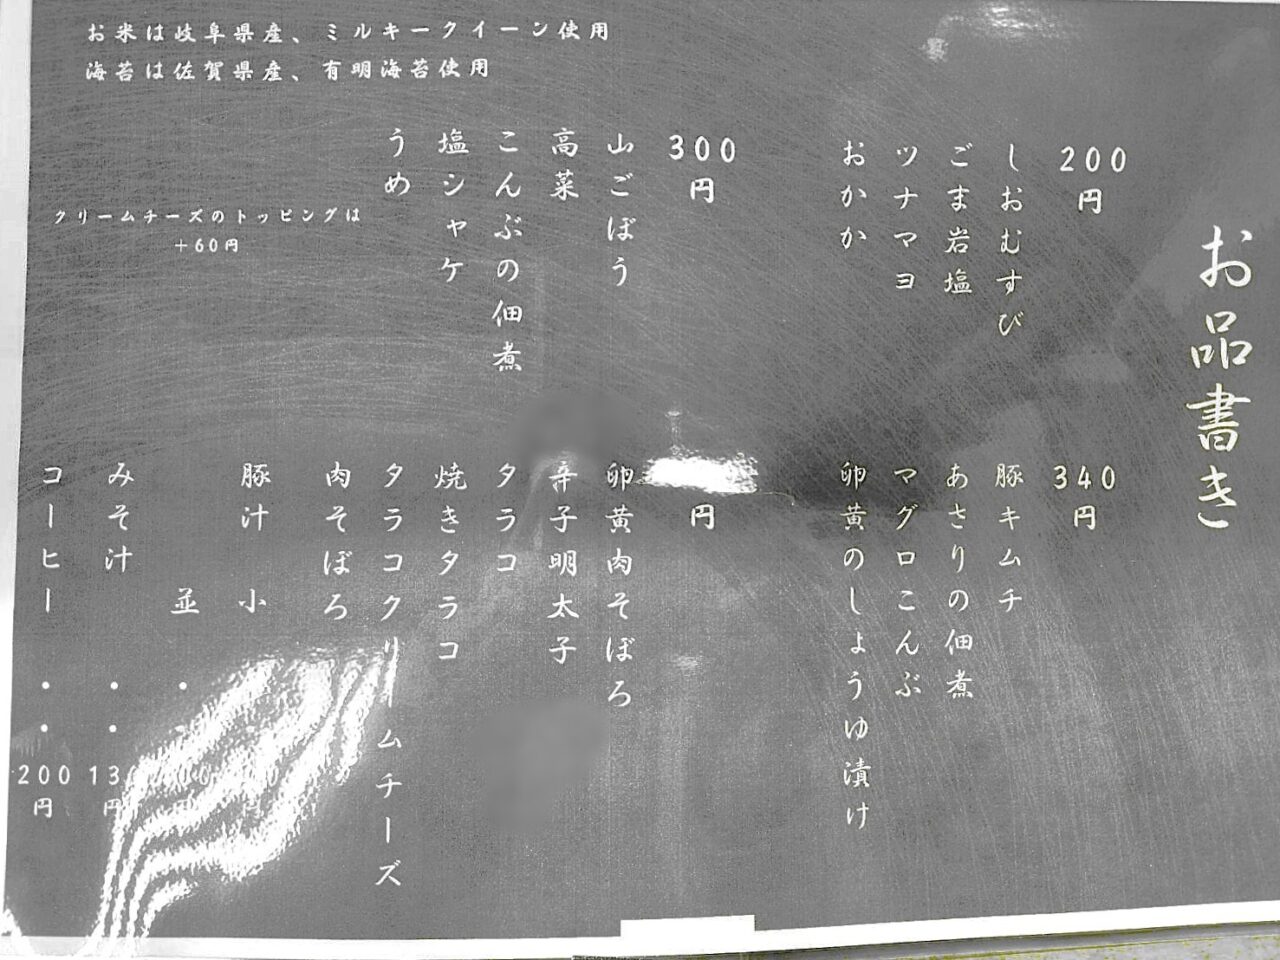 お品書き
200
円
しおむすび
ごま岩塩
ツナマヨ
おかか
300
円
山ごぼう
高菜
こんぶの佃煮
塩シャケ
うめ
お米は岐阜県産、ミルキークイーン使用
海苔は佐賀県産、有明海苔使用
クリームチーズのトッピングは
+60円
340
円
豚キムチ
あさりの佃煮
マグロこんぶ
卵黄のしょうゆ漬け
円
卵黄肉そぼろ
辛子明太子
タラコ
焼きタラコ
タラコクリームチーズ
肉そぼろ
豚汁 小
並 ・
みそ汁 ・・
コーヒー ・・200円